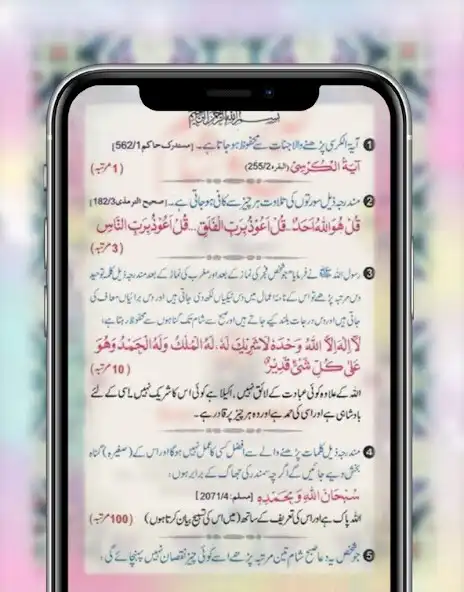 بسم الله الرحمن الرحيم
❶ آیۃ الکرسی پڑھنے والا جنات سے محفوظ ہو جاتا ہے۔ [مستدرک حاکم 562/1]
آيَةُ الْكُرْسِيْ (البقرہ 255/2) (1 مرتبہ)
❷ مندرجہ ذیل سورتوں کی تلاوت ہر چیز سے کافی ہو جاتی ہے۔ [صحیح الترمذی 182/3]
قُلْ هُوَ اللهُ اَحَدٌ...قُلْ اَعُوْذُ بِرَبِّ الْفَلَقِ...قُلْ اَعُوْذُ بِرَبِّ النَّاسِ
(3 مرتبہ)
❸ رسول اللہ ﷺ نے فرمایا "جو شخص فجر کی نماز کے بعد اور مغرب کی نماز کے بعد مندرجہ ذیل کلمہ توحید
دس مرتبہ پڑھے تو اس کے نامۂ اعمال میں دس نیکیاں لکھ دی جاتی ہیں اور دس برائیاں معاف کی
جاتی ہیں اور دس درجات بلند کیے جاتے ہیں اور صبح سے شام تک گناہوں سے محفوظ رہتا ہے۔
لَا اِلٰهَ اِلَّا اللهُ وَحْدَهٗ لَا شَرِيْكَ لَهٗ، لَهُ الْمُلْكُ وَلَهُ الْحَمْدُ وَهُوَ
عَلٰى كُلِّ شَيْءٍ قَدِيْرٌ (10 مرتبہ)
اللہ کے علاوہ کوئی عبادت کے لائق نہیں، اکیلا ہے کوئی اس کا شریک نہیں۔ اسی کے لئے
بادشاہی ہے اور اسی کی حمد ہے اور وہ ہر چیز پر قادر ہے۔
❹ مندرجہ ذیل کلمات پڑھنے والے سے افضل کسی کا عمل نہیں ہوگا اور اس کے (صغیرہ) گناہ
بخش دیے جائیں گے اگرچہ سمندر کی جھاگ کے برابر ہوں:
سُبْحَانَ اللهِ وَبِحَمْدِهٖ [مسلم: 2071/4]
اللہ پاک ہے اور اس کی تعریف کے ساتھ (میں اس کی تسبیح بیان کرتا ہوں) (100 مرتبہ)
❺ جو شخص یہ دعا صبح شام تین مرتبہ پڑھے اسے کوئی چیز نقصان نہیں پہنچائے گی: